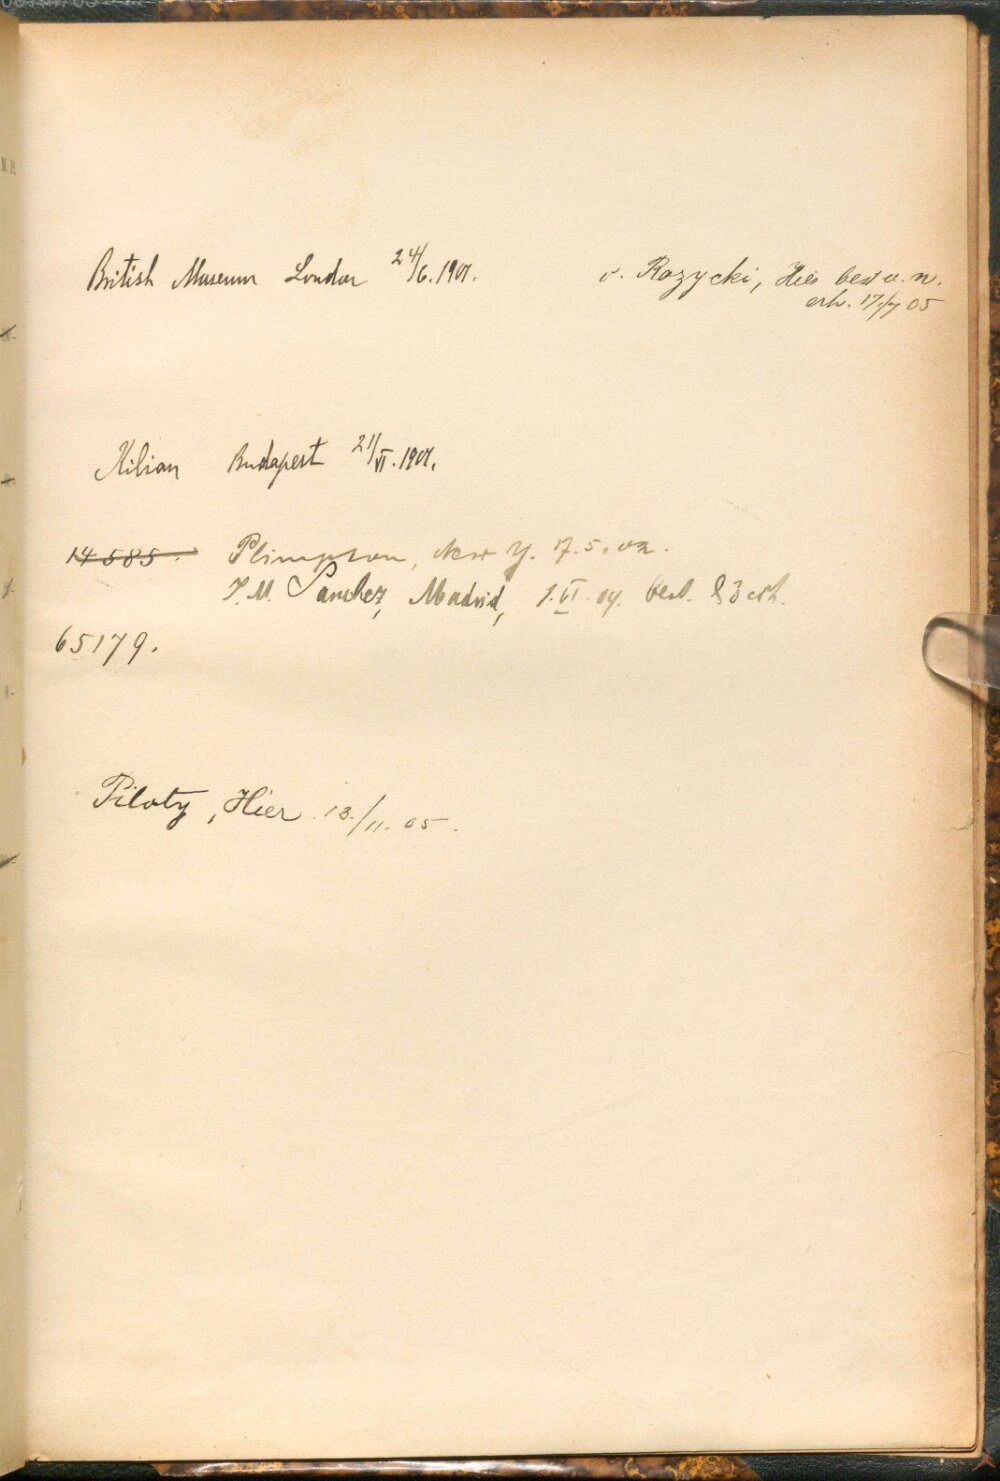 British Museum London 24/6.1901.
v. Rozycki, Hier best u. n.
erh. 17./7 05
Kilian Budapest 21/VI.1901.
14585.
Plimpton, New Y. 17.5.02.
J.M. Sanchez, Madrid, 1.VI.04. best. & erh.
65179.
Piloty, Hier 13./11. 05.